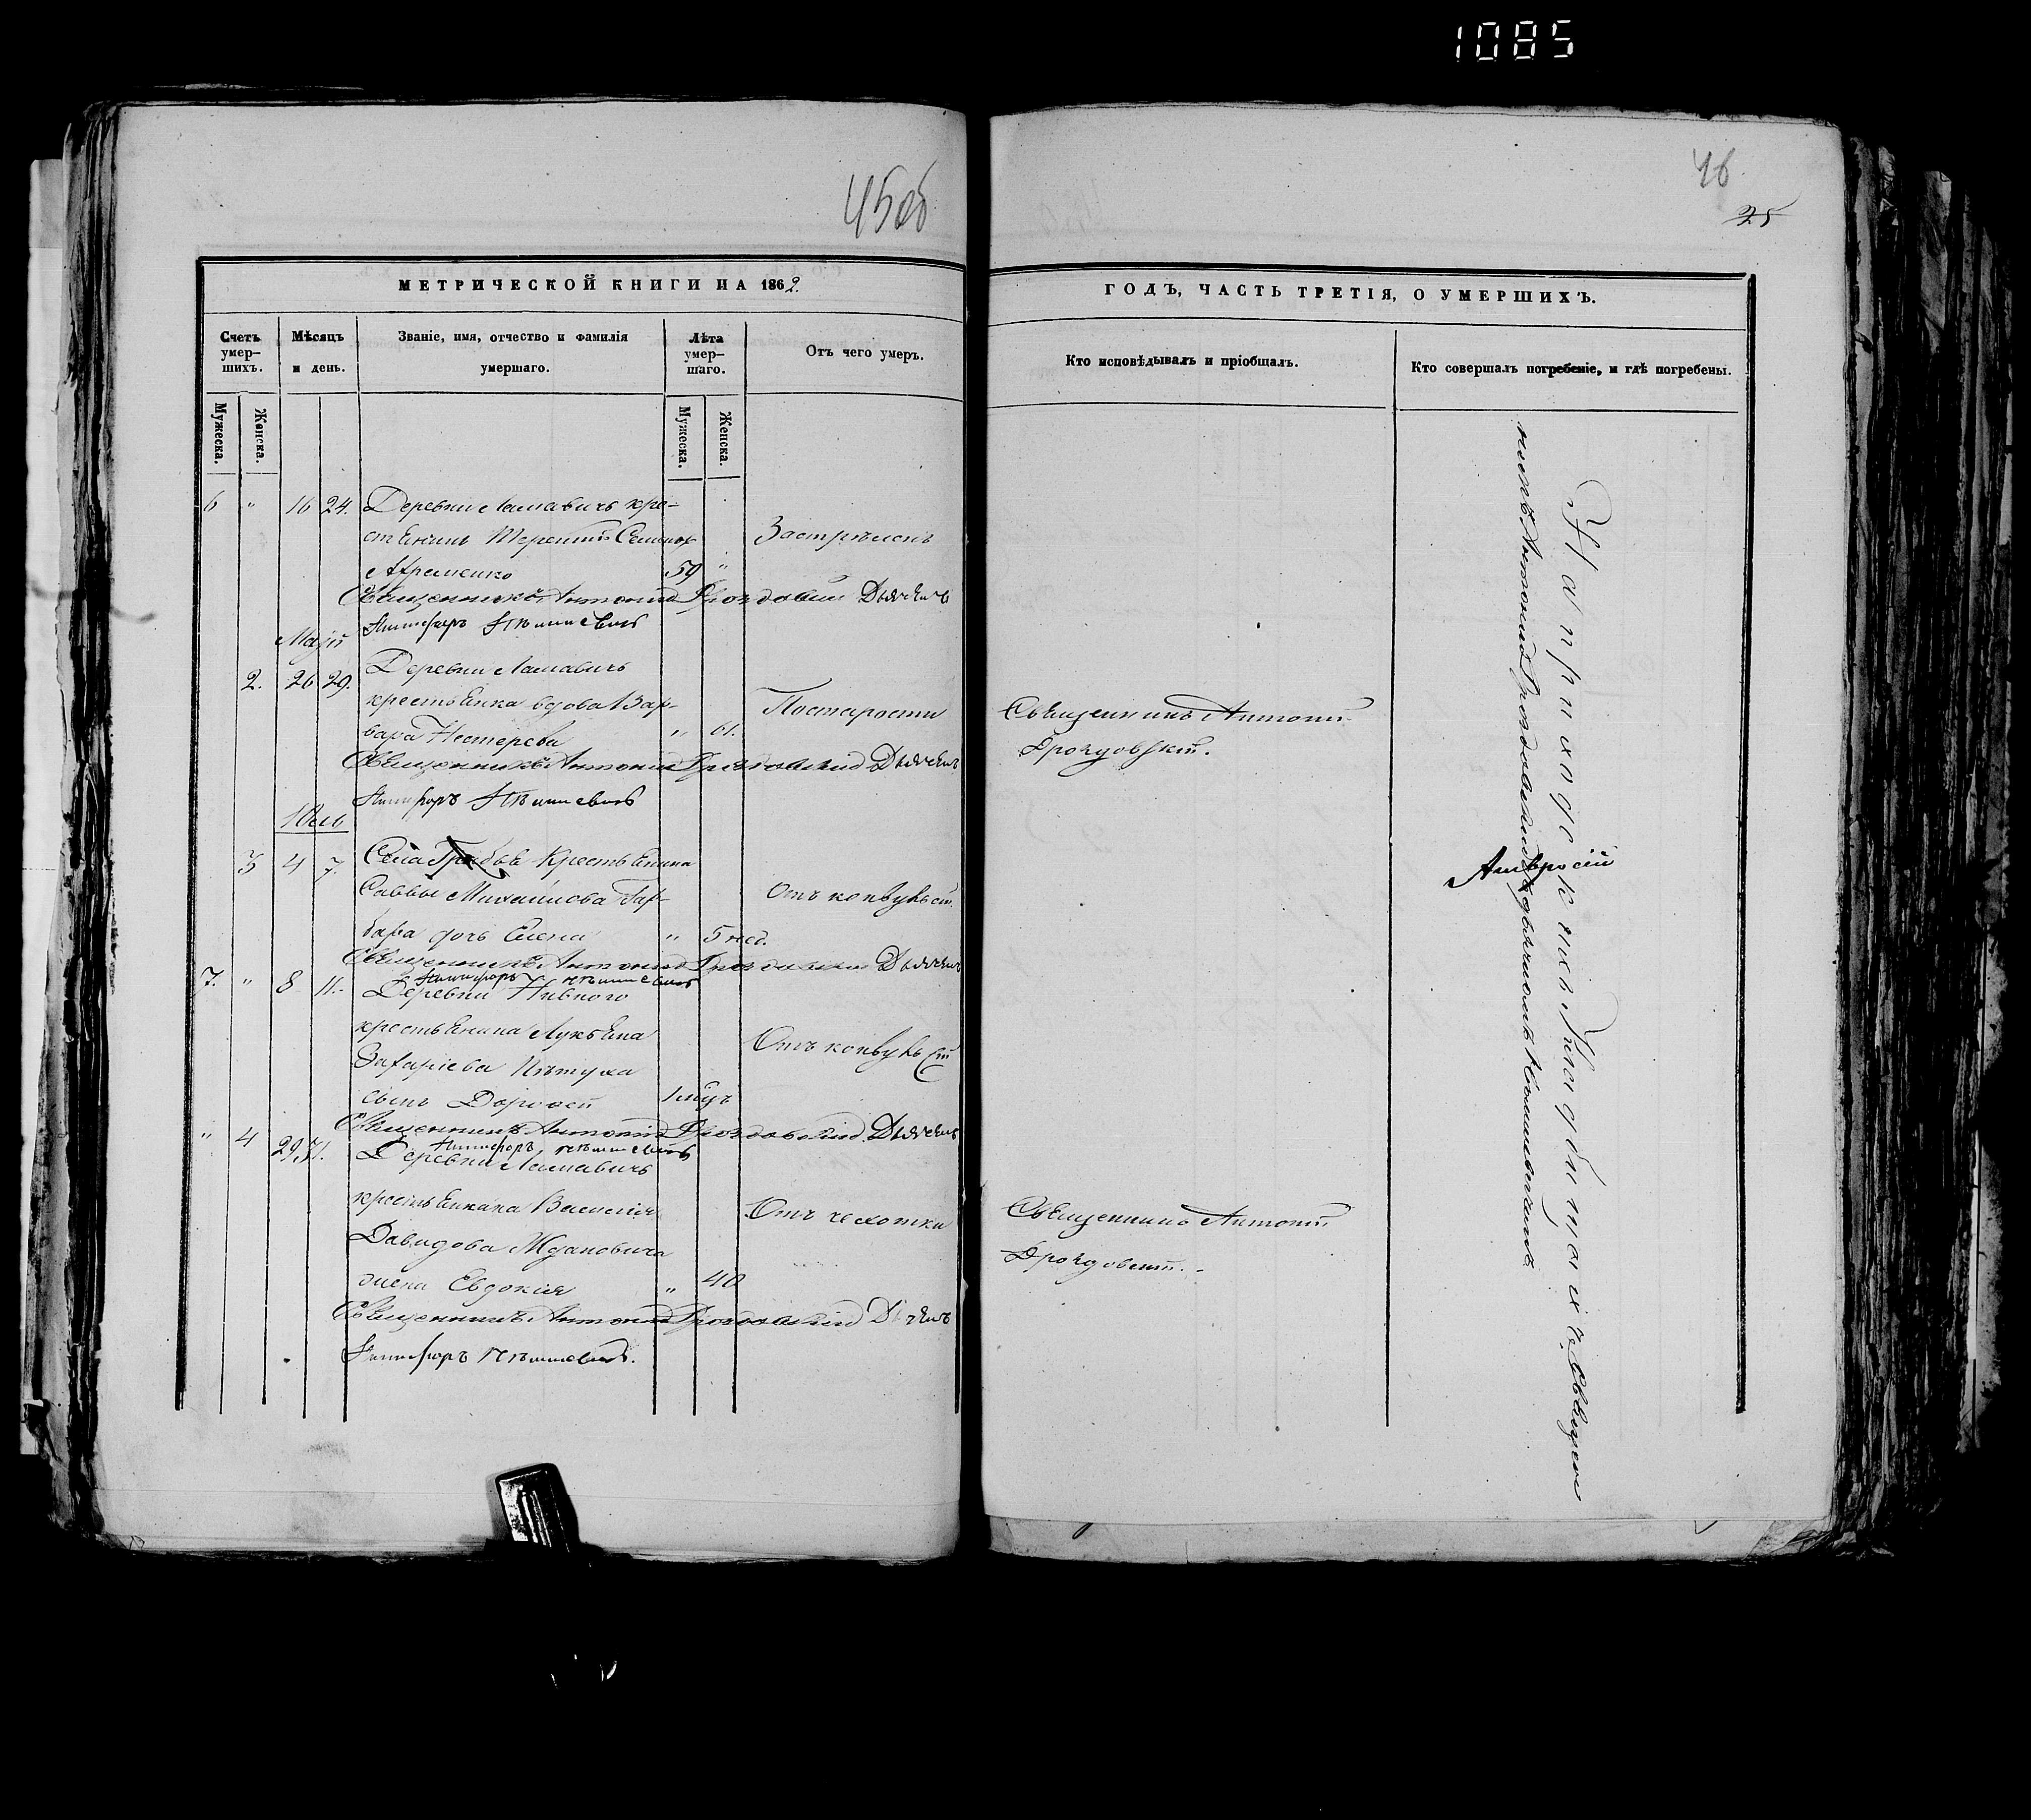 1085
45об
46
25
МЕТРИЧЕСКОЙ КНИГИ НА 1862.
ГОДЪ, ЧАСТЬ ТРЕТІЯ, О УМЕРШИХЪ.
Счетъ умер-шихъ.
Мѣсяцъ и день.
Званіе, имя, отчество и фамилія умершаго.
Лѣта умер-шаго.
Отъ чего умеръ.
Кто исповѣдывалъ и пріобщалъ.
Кто совершалъ погребеніе, и гдѣ погребены.
Мужеска.
Женска.
Мужеска.
Женска.
6 " 16 24. Деревни Ламавичъ кре-
стьянинъ Терентій
Застрѣленъ
59 "
Священникъ Антоній Дроздовскій Дьячекъ
Никифоръ
Маій
2. 26 29. Деревни Ламавичъ
крестьянка вдова Вар-
вара Нестерова " 61.
Постарости
Священникъ Антоній
Дроздовскій.
Священникъ Антоній Дроздовскій Дьячекъ
Никифоръ
Юль
3 4 7. Села Грабье Крестьянина
Саввы Михайлова Гар-
бара дочь Елена " 5 нед.
Отъ конвульсій.
Священникъ Антоній Дроздовскій Дьячекъ
Никифоръ
7. " 8 11. Деревни Нивного
крестьянина Лукьяна
Захаріева Пѣтуха
сынъ Дорофей 1 мѣц
Отъ конвульсій
Священникъ Антоній Дроздовскій Дьячекъ
Никифоръ
" 4 29 31. Деревни Ламавичъ
крестьянина Василія
Давидова Ждановича
жена Евдокія " 40
Отъ чахотки
Священникъ Антоній
Дроздовскій.
Священникъ Антоній Дроздовскій Дьячекъ
Никифоръ
На приходскихъ кладбищахъ, Священ
никъ Антоній Дроздовскій съ дьячкомъ
Амвросій